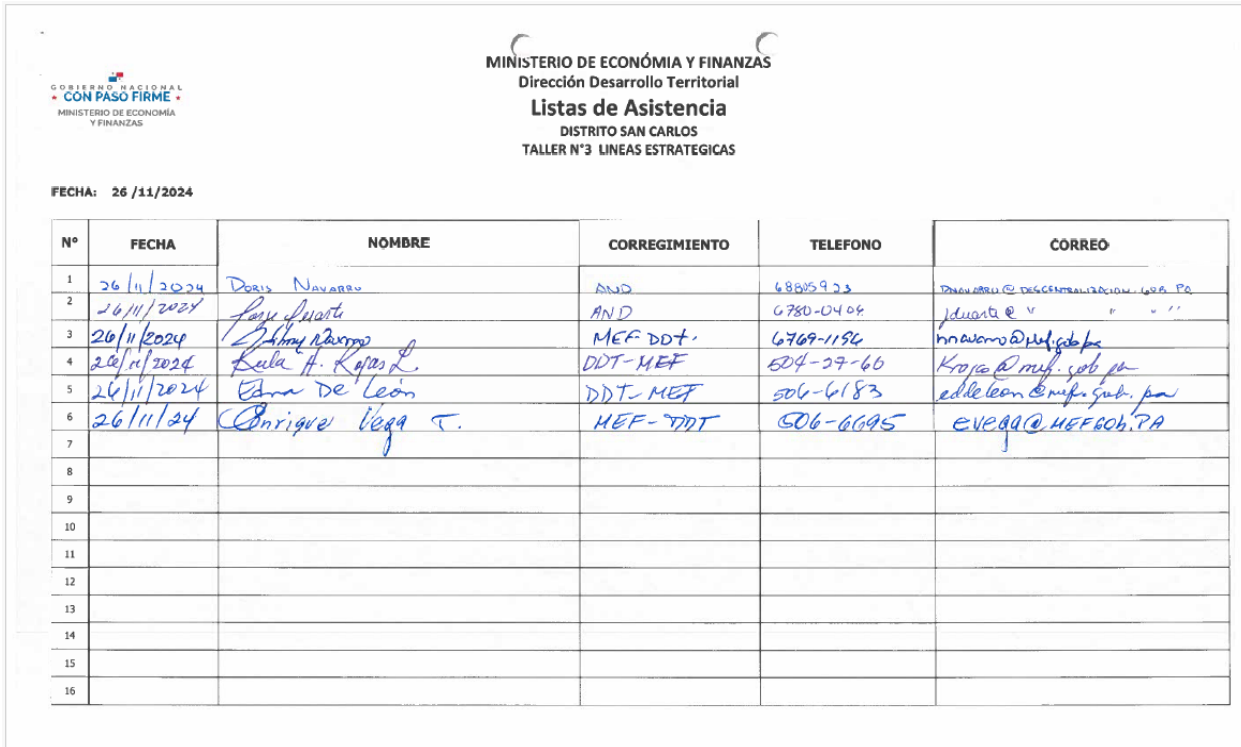 GOBIERNO NACIONAL
CON PASO FIRME
MINISTERIO DE ECONOMÍA
Y FINANZAS
MINISTERIO DE ECONÓMIA Y FINANZAS
Dirección Desarrollo Territorial
Listas de Asistencia
DISTRITO SAN CARLOS
TALLER N°3 LINEAS ESTRATEGICAS
FECHA: 26 /11/2024
N° FECHA NOMBRE CORREGIMIENTO TELEFONO CORREO
1 26/11/2024 DORIS NAVARRO AND 68805923 DNAVARRO@DESCENTRALIZACION.GOB.PA
2 26/11/2024 Jorge Duarte AND 6780-0404 jduarte@ " " " "
3 26/11/2024 Navarro MEF DDT. 6769-1154 hnavarro@mef.gob.pa
4 26/11/2024 A. Rojas L DDT-MEF 504-27-60 Krojas@mef.gob.pa
5 26/11/2024 Edna De León DDT-MEF 506-6183 eddeleon@mef.gob.pa
6 26/11/24 Enrique Vega T. MEF-DDT 506-6695 evega@MEF.GOb.PA
7
8
9
10
11
12
13
14
15
16